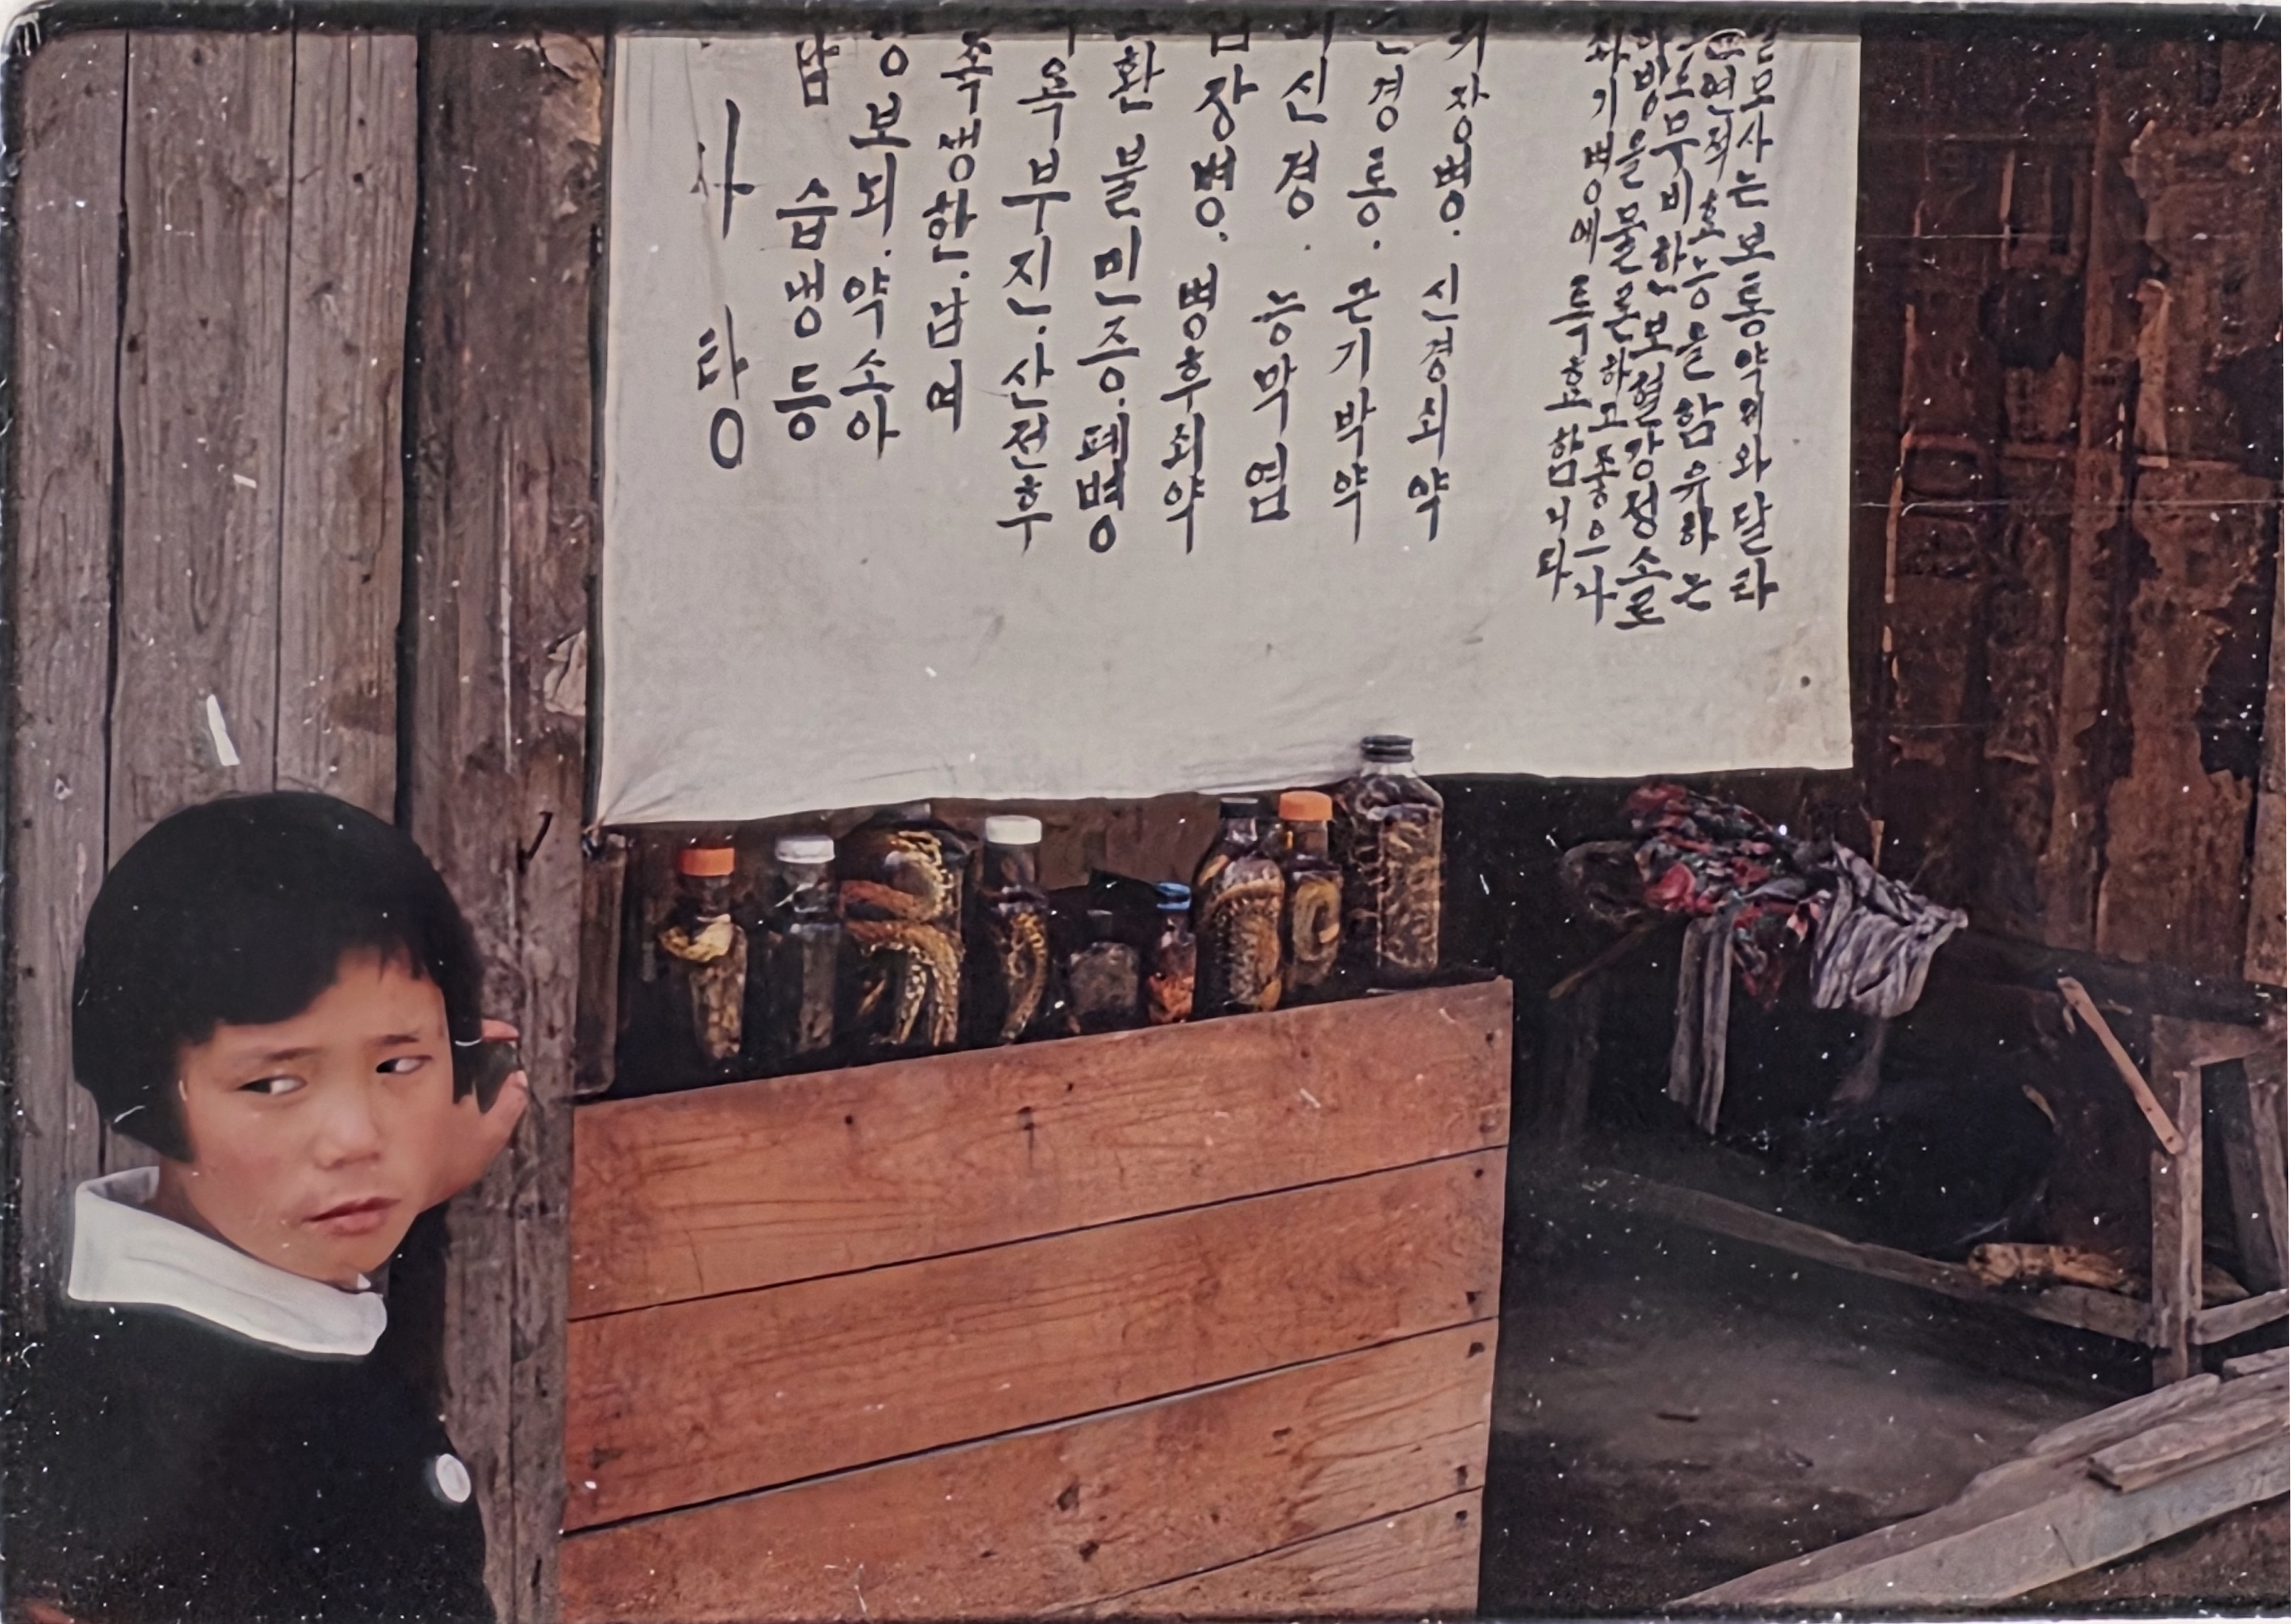 모사는보통약제와달라
연적효능을함유하는
도무비한보혈강정소로
방을물론하고좋으나
기병에특효함니다
장병. 신경쇠약
경통. 근기박약
신경. 능막염
장병. 병후쇠약
환 불민증. 폐병
욕부진. 산전후
족냉한. 담
보뇌. 약소아
담 습냉등
사탕